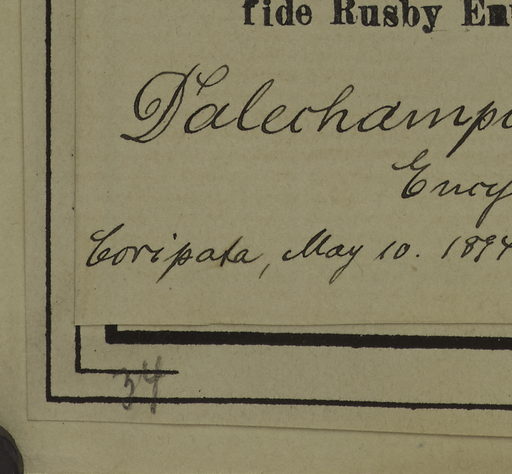 fide Rusby En
Dalechamp
Ency
Coripata, May 10. 1894
34